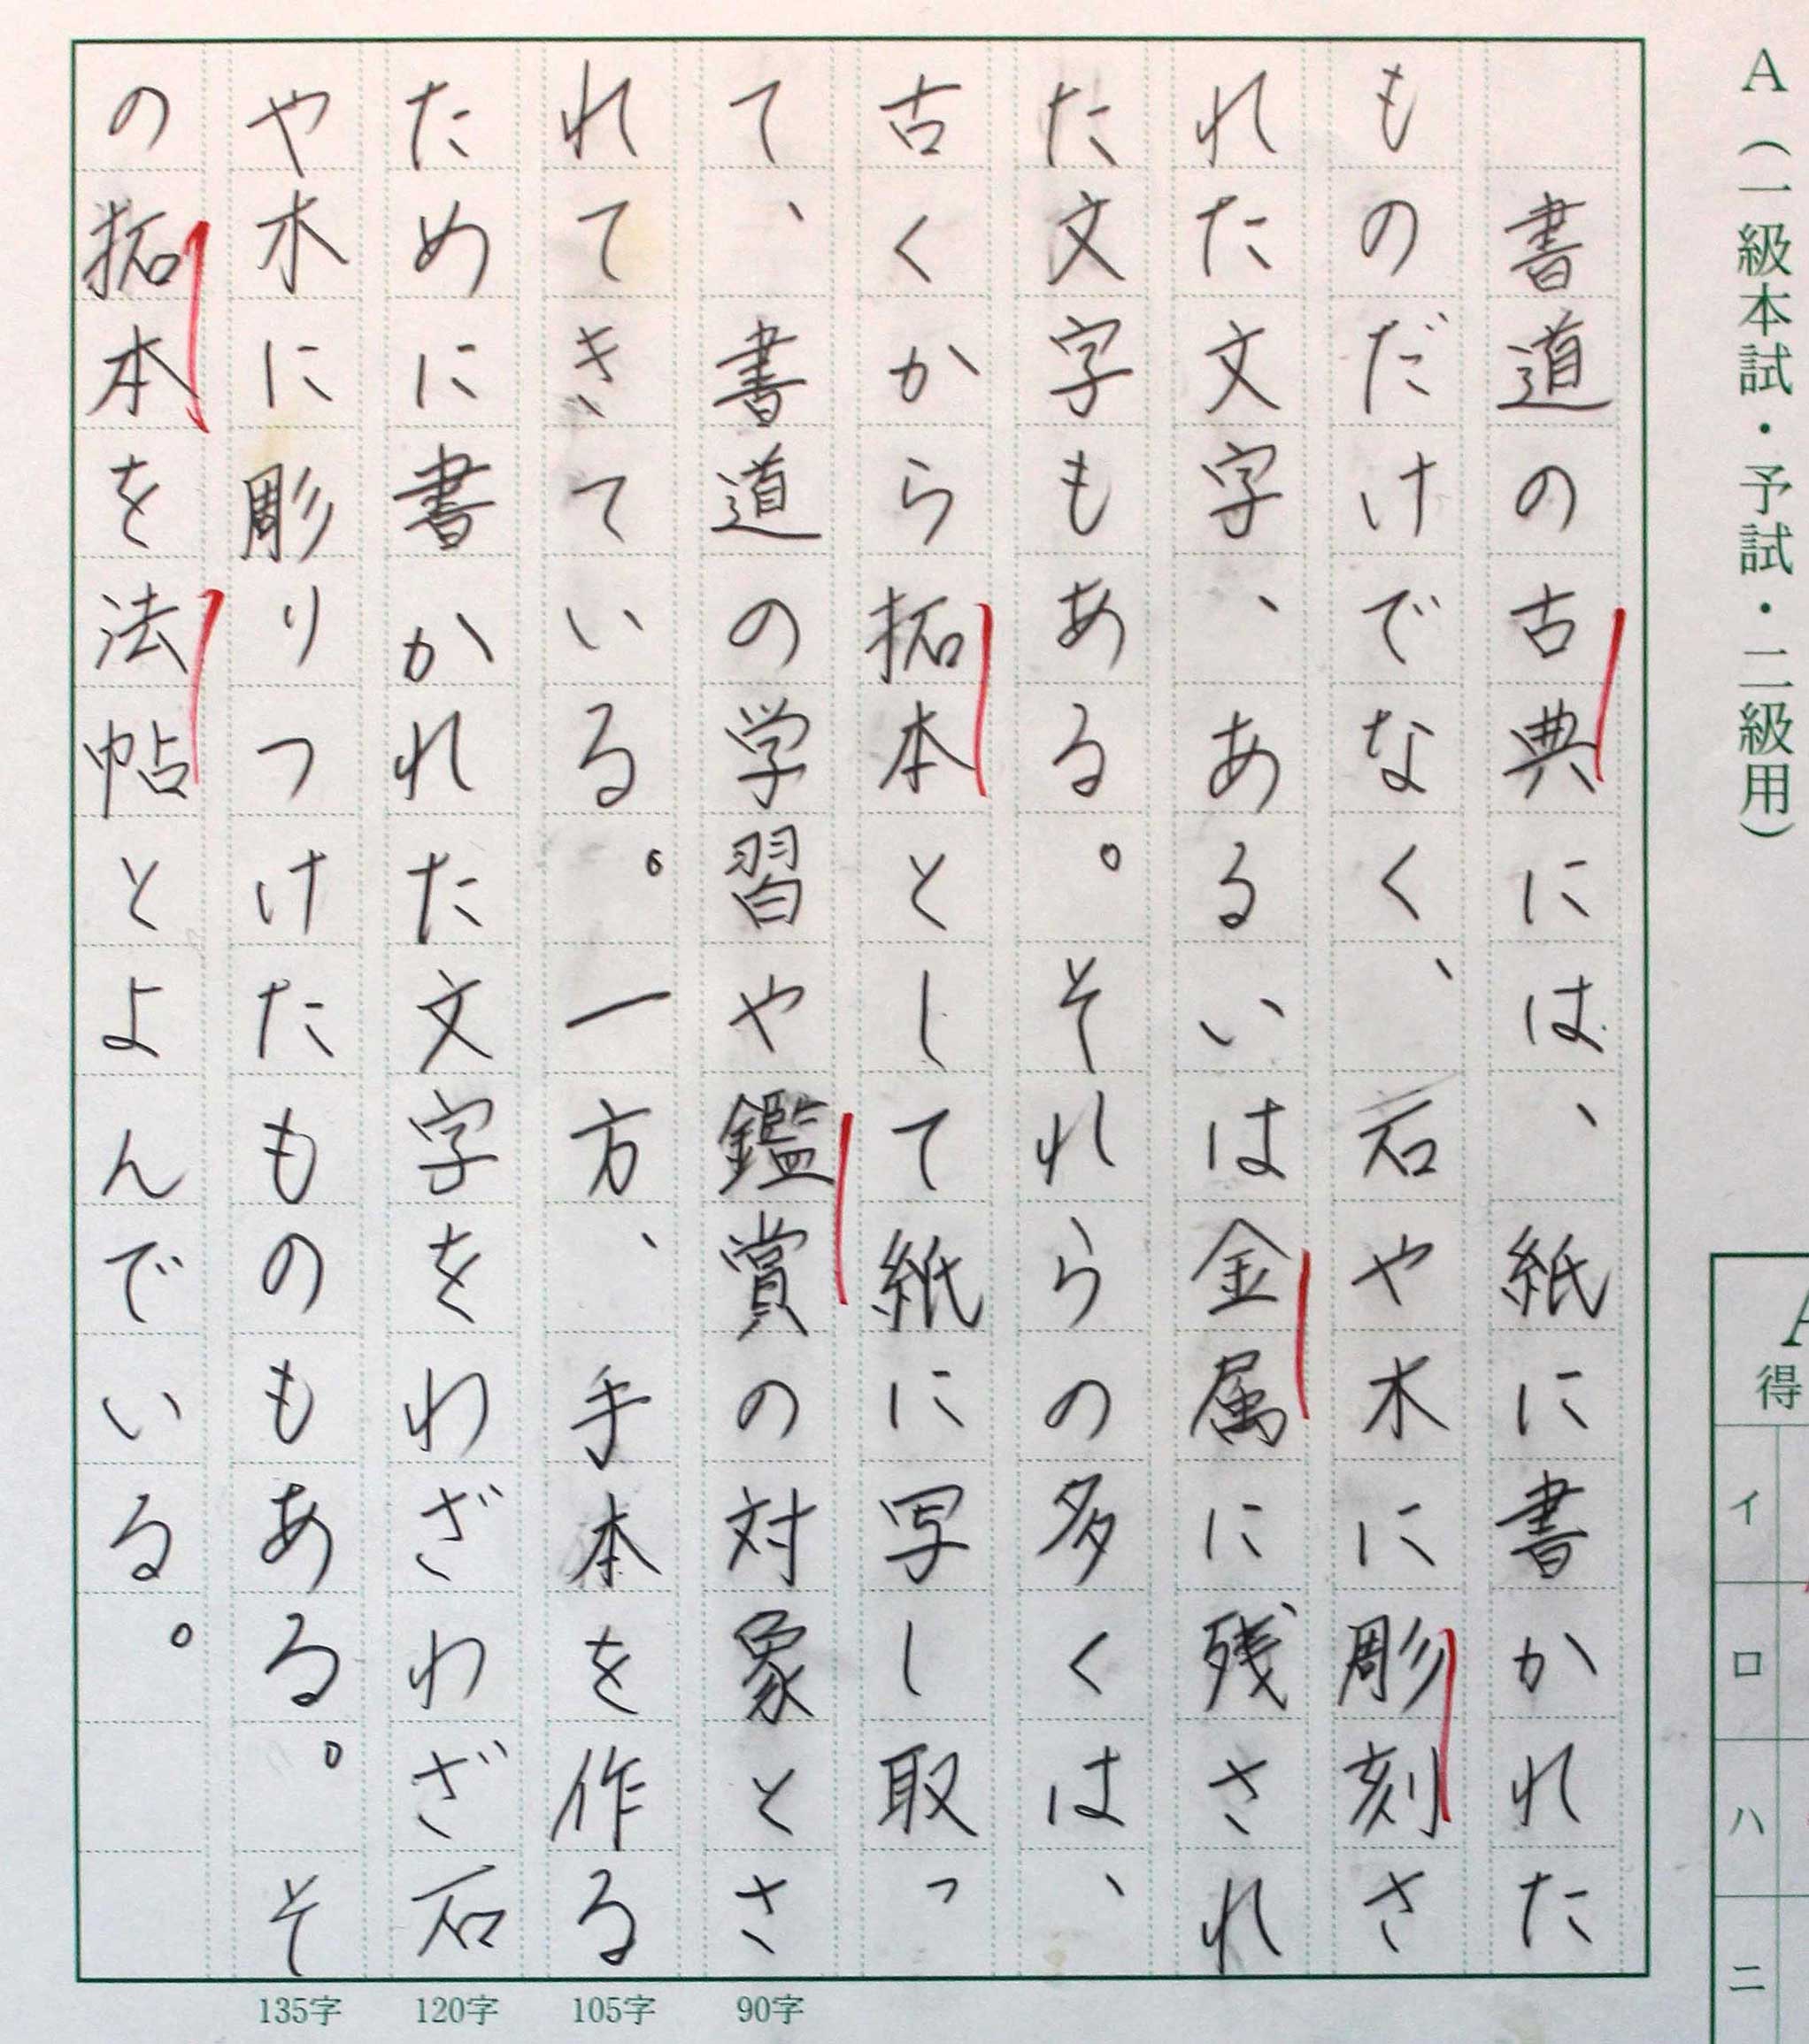 A（一級本試・予試・二級用）
書道の古典には、紙に書かれた
ものだけでなく、石や木に彫刻さ
れた文字、あるいは金属に残され
た文字もある。それらの多くは、
古くから拓本として紙に写し取っ
て、書道の学習や鑑賞の対象とさ
れてきている。一方、手本を作る
ために書かれた文字をわざわざ石
や木に彫りつけたものもある。そ
の拓本を法帖とよんでいる。
135字
120字
105字
90字
A
得
イ
ロ
ハ
ニ